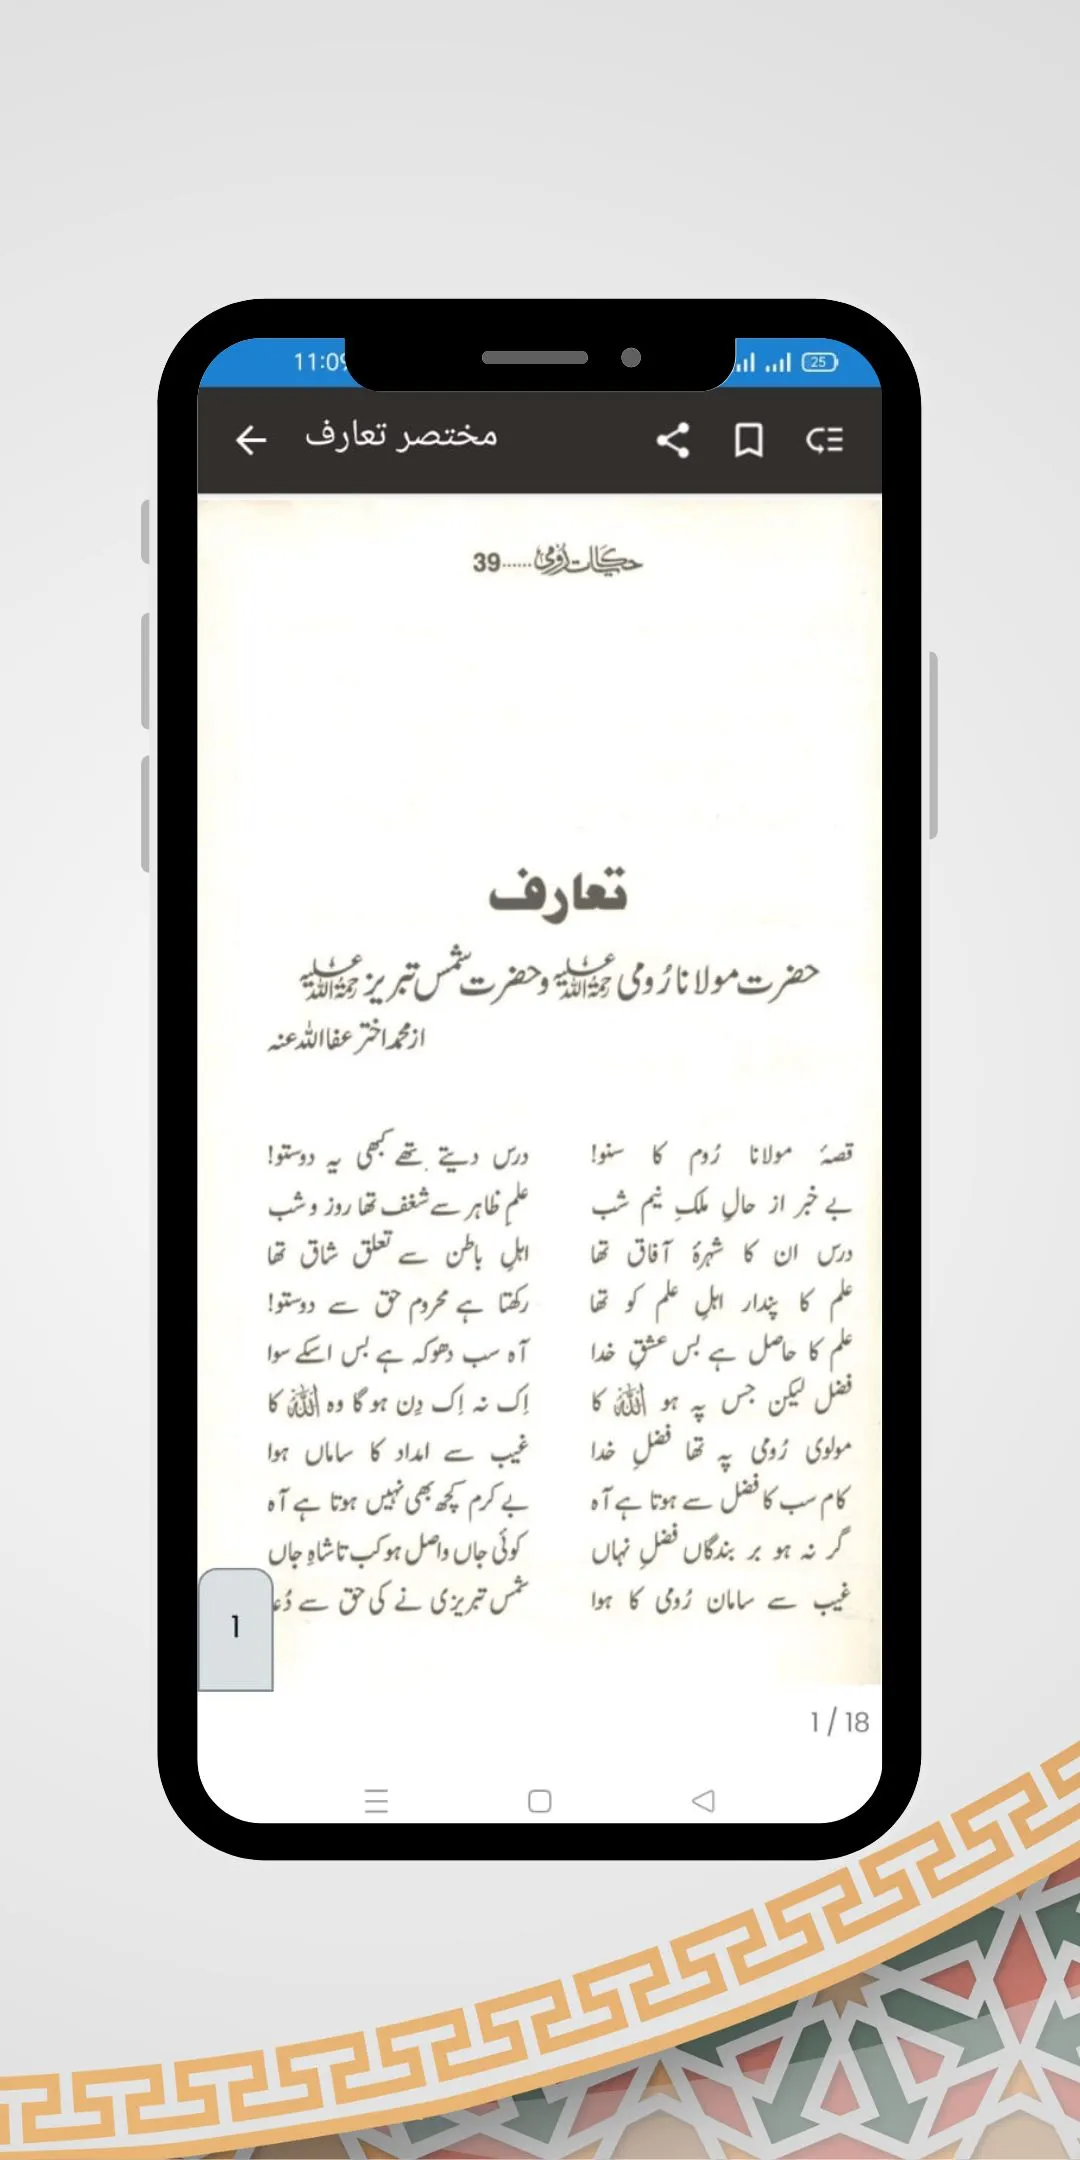 11:09
25
مختصر تعارف
حکایات رُومی......39
تعارف
حضرت مولانا رُومی رحمۃ اللہ علیہ و حضرت شمس تبریز رحمۃ اللہ علیہ
از محمد اختر عفا اللہ عنہ
قصۂ مولانا رُوم کا سنو! درس دیتے تھے کبھی یہ دوستو!
بے خبر از حالِ ملکِ نیم شب علمِ ظاہر سے شغف تھا روز و شب
درس ان کا شہرۂ آفاق تھا اہلِ باطن سے تعلق شاق تھا
علم کا پندار اہلِ علم کو تھا رکھتا ہے محروم حق سے دوستو!
علم کا حاصل ہے بس عشقِ خدا آہ سب دھوکہ ہے بس اسکے سوا
فضل لیکن جس پہ ہو اللہ کا اِک نہ اِک دِن ہوگا وہ اللہ کا
مولوی رُومی پہ تھا فضلِ خدا غیب سے امداد کا ساماں ہوا
کام سب کا فضل سے ہوتا ہے آہ بے کرم کچھ بھی نہیں ہوتا ہے آہ
گر نہ ہو بر بندگاں فضلِ نہاں کوئی جاں واصل ہو کب تا شاہِ جاں
غیب سے سامان رُومی کا ہوا شمس تبریزی نے کی حق سے دُعا
1
1 / 18